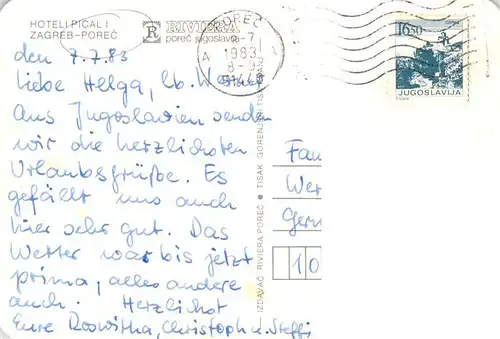 HOTELI PICAL I
ZAGREB-POREČ
R RIVIERA
poreč jugoslavija
POREČ
1983
16.50
JUGOSLAVIJA
den 7.7.83
Liebe Helga, lb. Werner
Aus Jugoslavien senden
wir die herzlichsten
Urlaubsgrüße. Es
gefällt uns auch
hier sehr gut. Das
Wetter war bis jetzt
prima, alles andere
auch. Herzlichst
Eure Roswitha, Christoph u. Steffi
IZDAVAČ RIVIERA POREČ ● TISAK GORENJSKI TISK KRANJ
Fam
Wer
Germ
10